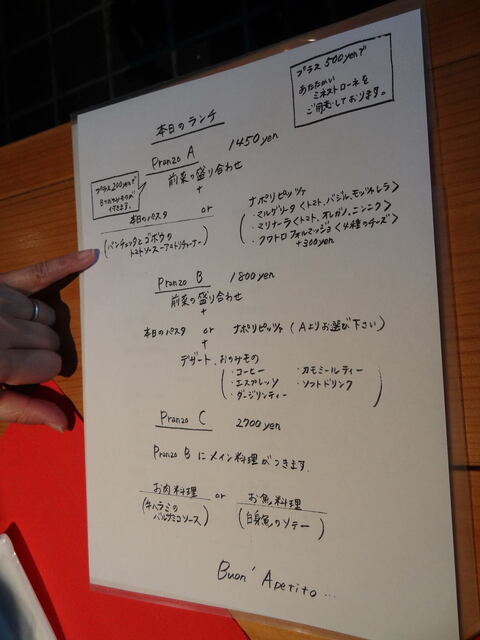 プラス 500yenで
あたたかい
ミネストローネを
ご用意しております。
本日のランチ
Pranzo A 1450yen
プラス200yenで
Bののみものが
付きます。
前菜の盛り合わせ
+
本日のパスタ or ナポリピッツァ
(パンチェッタとゴボウの
トマトソース アマトリチャーナ)
(・マルゲリータ〈トマト、バジル、モッツァレラ〉
・マリナーラ〈トマト、オレガノ、ニンニク〉
・クワトロフォルマッジョ〈4種のチーズ〉
+300yen)
Pranzo B 1800yen
前菜の盛り合わせ
+
本日のパスタ or ナポリピッツァ (Aよりお選び下さい)
+
デザート、おのみもの
(・コーヒー ・カモミールティー
・エスプレッソ ・ソフトドリンク
・ダージリンティー)
Pranzo C 2700yen
Pranzo B にメイン料理がつきます.
お肉料理 or お魚料理
(牛ハラミの
バルサミコソース)
(白身魚のソテー)
Buon' Apetito...